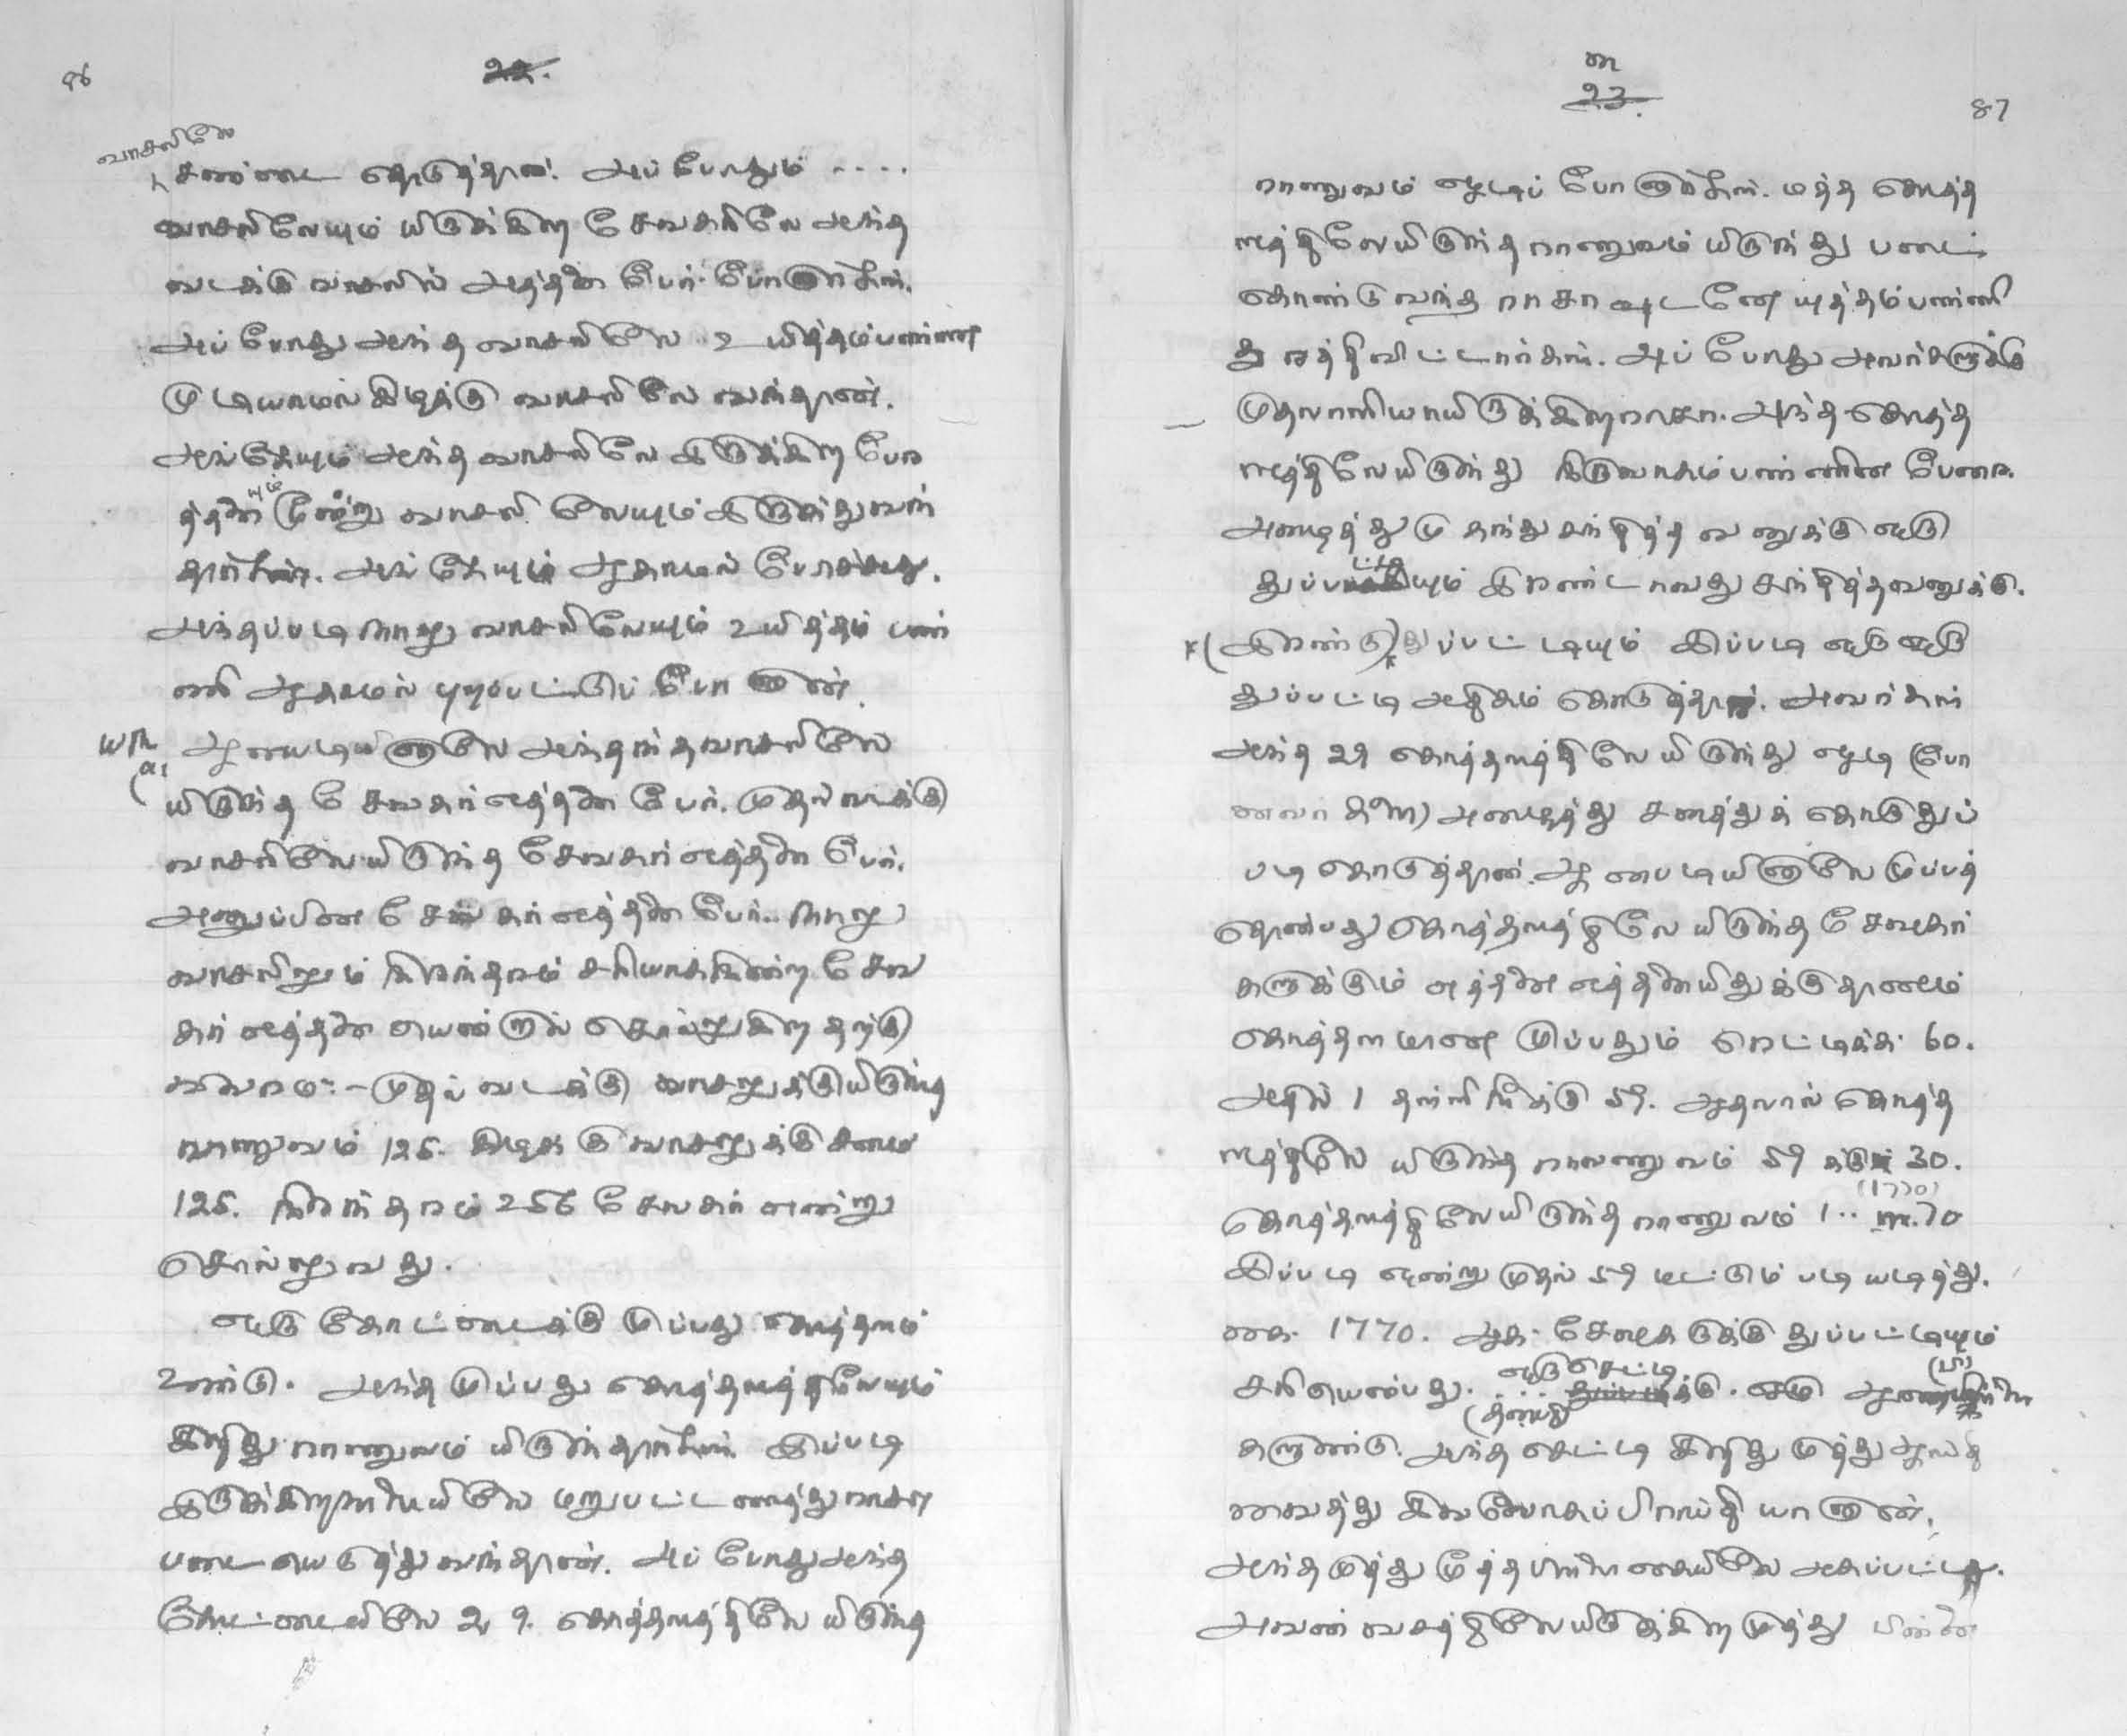 86
22.
வாசலிலே
சண்டை தொடுத்தான். அப்போதும் ....
வாசலிலேயும் யிருக்கிற சேவகரிலே அந்த
வடக்கு வாசலில் அத்தனை பேர் போனார்கள்.
அப்போது அந்த வாசலிலே உயித்தம்பண்ண
முடியாமல் கிழக்கு வாசலிலே வந்தான்.
அங்கேயும் அந்த வாசலிலே இருக்கிற பேர
த்தனையும் மூன்று வாசலிலேயும் இருந்து வந்
தார்கள். அங்கேயும் ஆகாமல் போச்சுது.
அந்தப்படி நாலு வாசலிலேயும் உயித்தம் பண்
ணி ஆகாமல் புறப்பட்டுப் போனான்.
ஆனபடியினாலே அந்தந்த வாசலிலே
யிருந்த சேவகர் எத்தனை பேர். முதல் வடக்கு
வாசலிலேயிருந்த சேவகர் எத்தனை பேர்.
அனுப்பின சேவகர் எத்தனை பேர். நாலு
வாசலிலும் நிரந்தரம் சரியாக நின்ற சேவ
கர் எத்தனை யென்றால் சொல்லுகிறதற்கு
விவரம்:- முதல் வடக்கு வாசலுக்குயிருந்த
ராணுவம் 125. கிழக்கு வாசலுக்கு
125. நிரந்தரம் 256 சேவகர் என்று
சொல்லுவது.
ஒரு கோட்டைக்கு முப்பது கொத்தளம்
உண்டு. அந்த முப்பது கொத்தளத்திலேயும்
ராணுவம் யிருந்தார்கள். இப்படி
இருக்கிற மறுபட்டணத்து ராசா
படையெடுத்து வந்தான். அப்போது அந்த
கோட்டையிலே 29. கொத்தளத்திலே யிருந்த
23.
87
ராணுவம் ஓடிப் போனார்கள். மத்த கொத்த
ளத்திலேயிருந்த ராணுவம் யிருந்து படை
கொண்டு வந்த ராசாவுடனே யுத்தம்பண்ணி
துரத்திவிட்டார்கள். அப்போது அவர்களுக்கு
முதலாளியாயிருக்கிற ராசா அந்த கொத்த
ளத்திலேயிருந்து நிருவாகம்பண்ணின பேரை
அழைத்து முதற்து சந்தித்தவனுக்கு ஒரு
துப்பட்டியும் இரண்டாவது சந்தித்தவனுக்கு.
(இரண்டு) துப்பட்டியும் இப்படி ஒரு ஒரு
துப்பட்டி அதிகம் கொடுத்தான். அவர்கள்
அந்த 29 கொத்தளத்திலேயிருந்து ஓடி (போ
னவர்களை) அழைத்து
படி கொடுத்தான். ஆனபடியினாலே முப்பத்
தொன்பது கொத்தளத்திலே யிருந்த சேவகர்
களுக்கும் எத்தனை எத்தனையிதுக்கு தானம்
கொத்தளமான முப்பதும் ரெட்டிக்க 60.
அதில் 1 தள்ளி நீக்கு 59. ஆதலால் கொத்த
ளத்திலே யிருந்த ராணுவம் 59 க்கு 30.
(1770)
கொத்தளத்திலேயிருந்த ராணுவம் 1..
இப்படி ஒன்று முதல் 59 மட்டும் படி யடித்து.
கை. 1770. ஆக சேவகருக்கு துப்பட்டியும்
சரியென்பது. ஒரு செட்டிக்கு
களுண்டு. அந்த செட்டி முத்து
வைத்து சிவலோகப் பிராப்தி யானான்.
அந்த முத்து மூத்த பிள்ளை கையிலே அகப்பட்டது.
அவன் வசத்திலேயிருக்கிற முத்து பின்னை